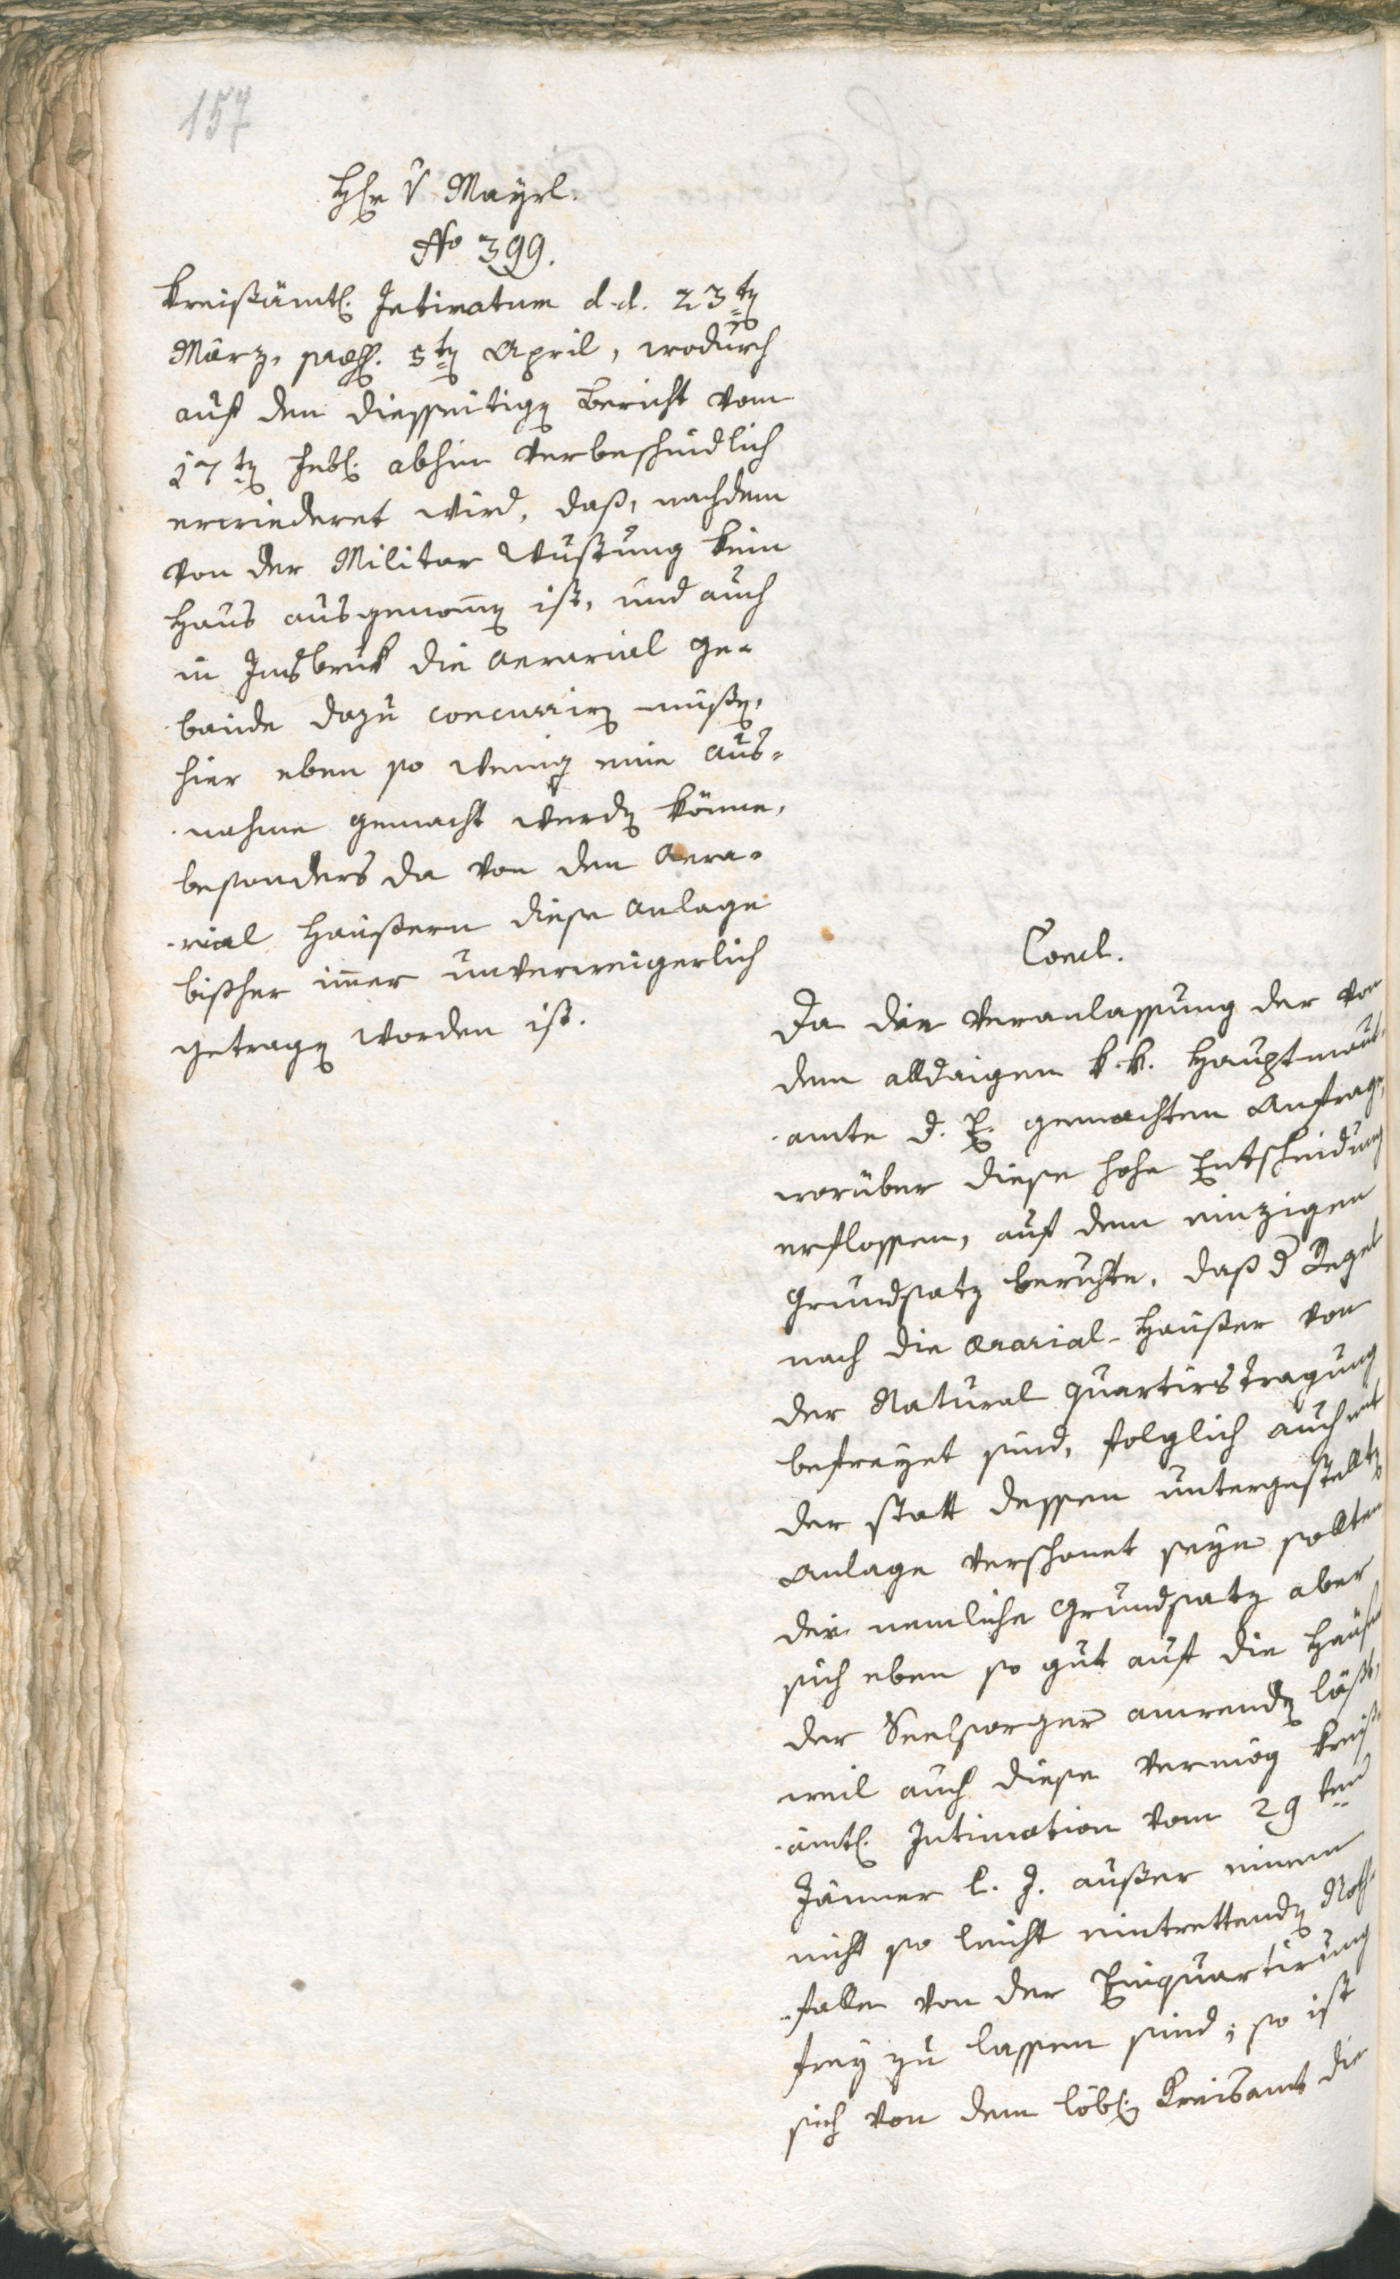 157
H(er)r v Mayrl.
No 399.
Kreißämtl. Intimatum d.d. 23ten
März, præs. 5ten April, wodurch
auf den diesseitigen Bericht vom
17ten hebl. abhin verbescheidlich
erwiederet wird, daß, nachdem
von der Militar kein
Haus ausgenommen ist, und auch
in Insbruk die Aerarial Ge-
bäude dazu concurrirn müßen,
hier eben so wenig eine Aus-
nahme gemacht werden könne,
besonders da von den Aera-
rial Häußern diese Anlage
bißher immer unverweigerlich
getragen worden ist.
Concl.
Da die Veranlassung der von
dem alldaigen k.k. Hauptmaut-
amte d. E. gemachten Anfrage,
worüber diese hohe Entscheidung
erflossen, auf dem einzigen
Grundsatz beruhte, daß d Regel
nach die Ærarial-Häußer von
der Natural Quartirstragung
befreyet sind, folglich auch mit
der statt dessen untergestellten
Anlage verschonet seyn sollten
der nemliche Grundsatz aber
sich eben so gut auf die Häuser
der Seelsorger anwenden läßt,
weil auch diese vermög Kreiß-
ämtl. Intimation vom 29ten
Jänner l. J. außer einem
nicht so leicht eintrettenden Noth-
falle von der Einquartirung
frey zu lassen sind; so ist
sich von dem löbl. Kreisamt die